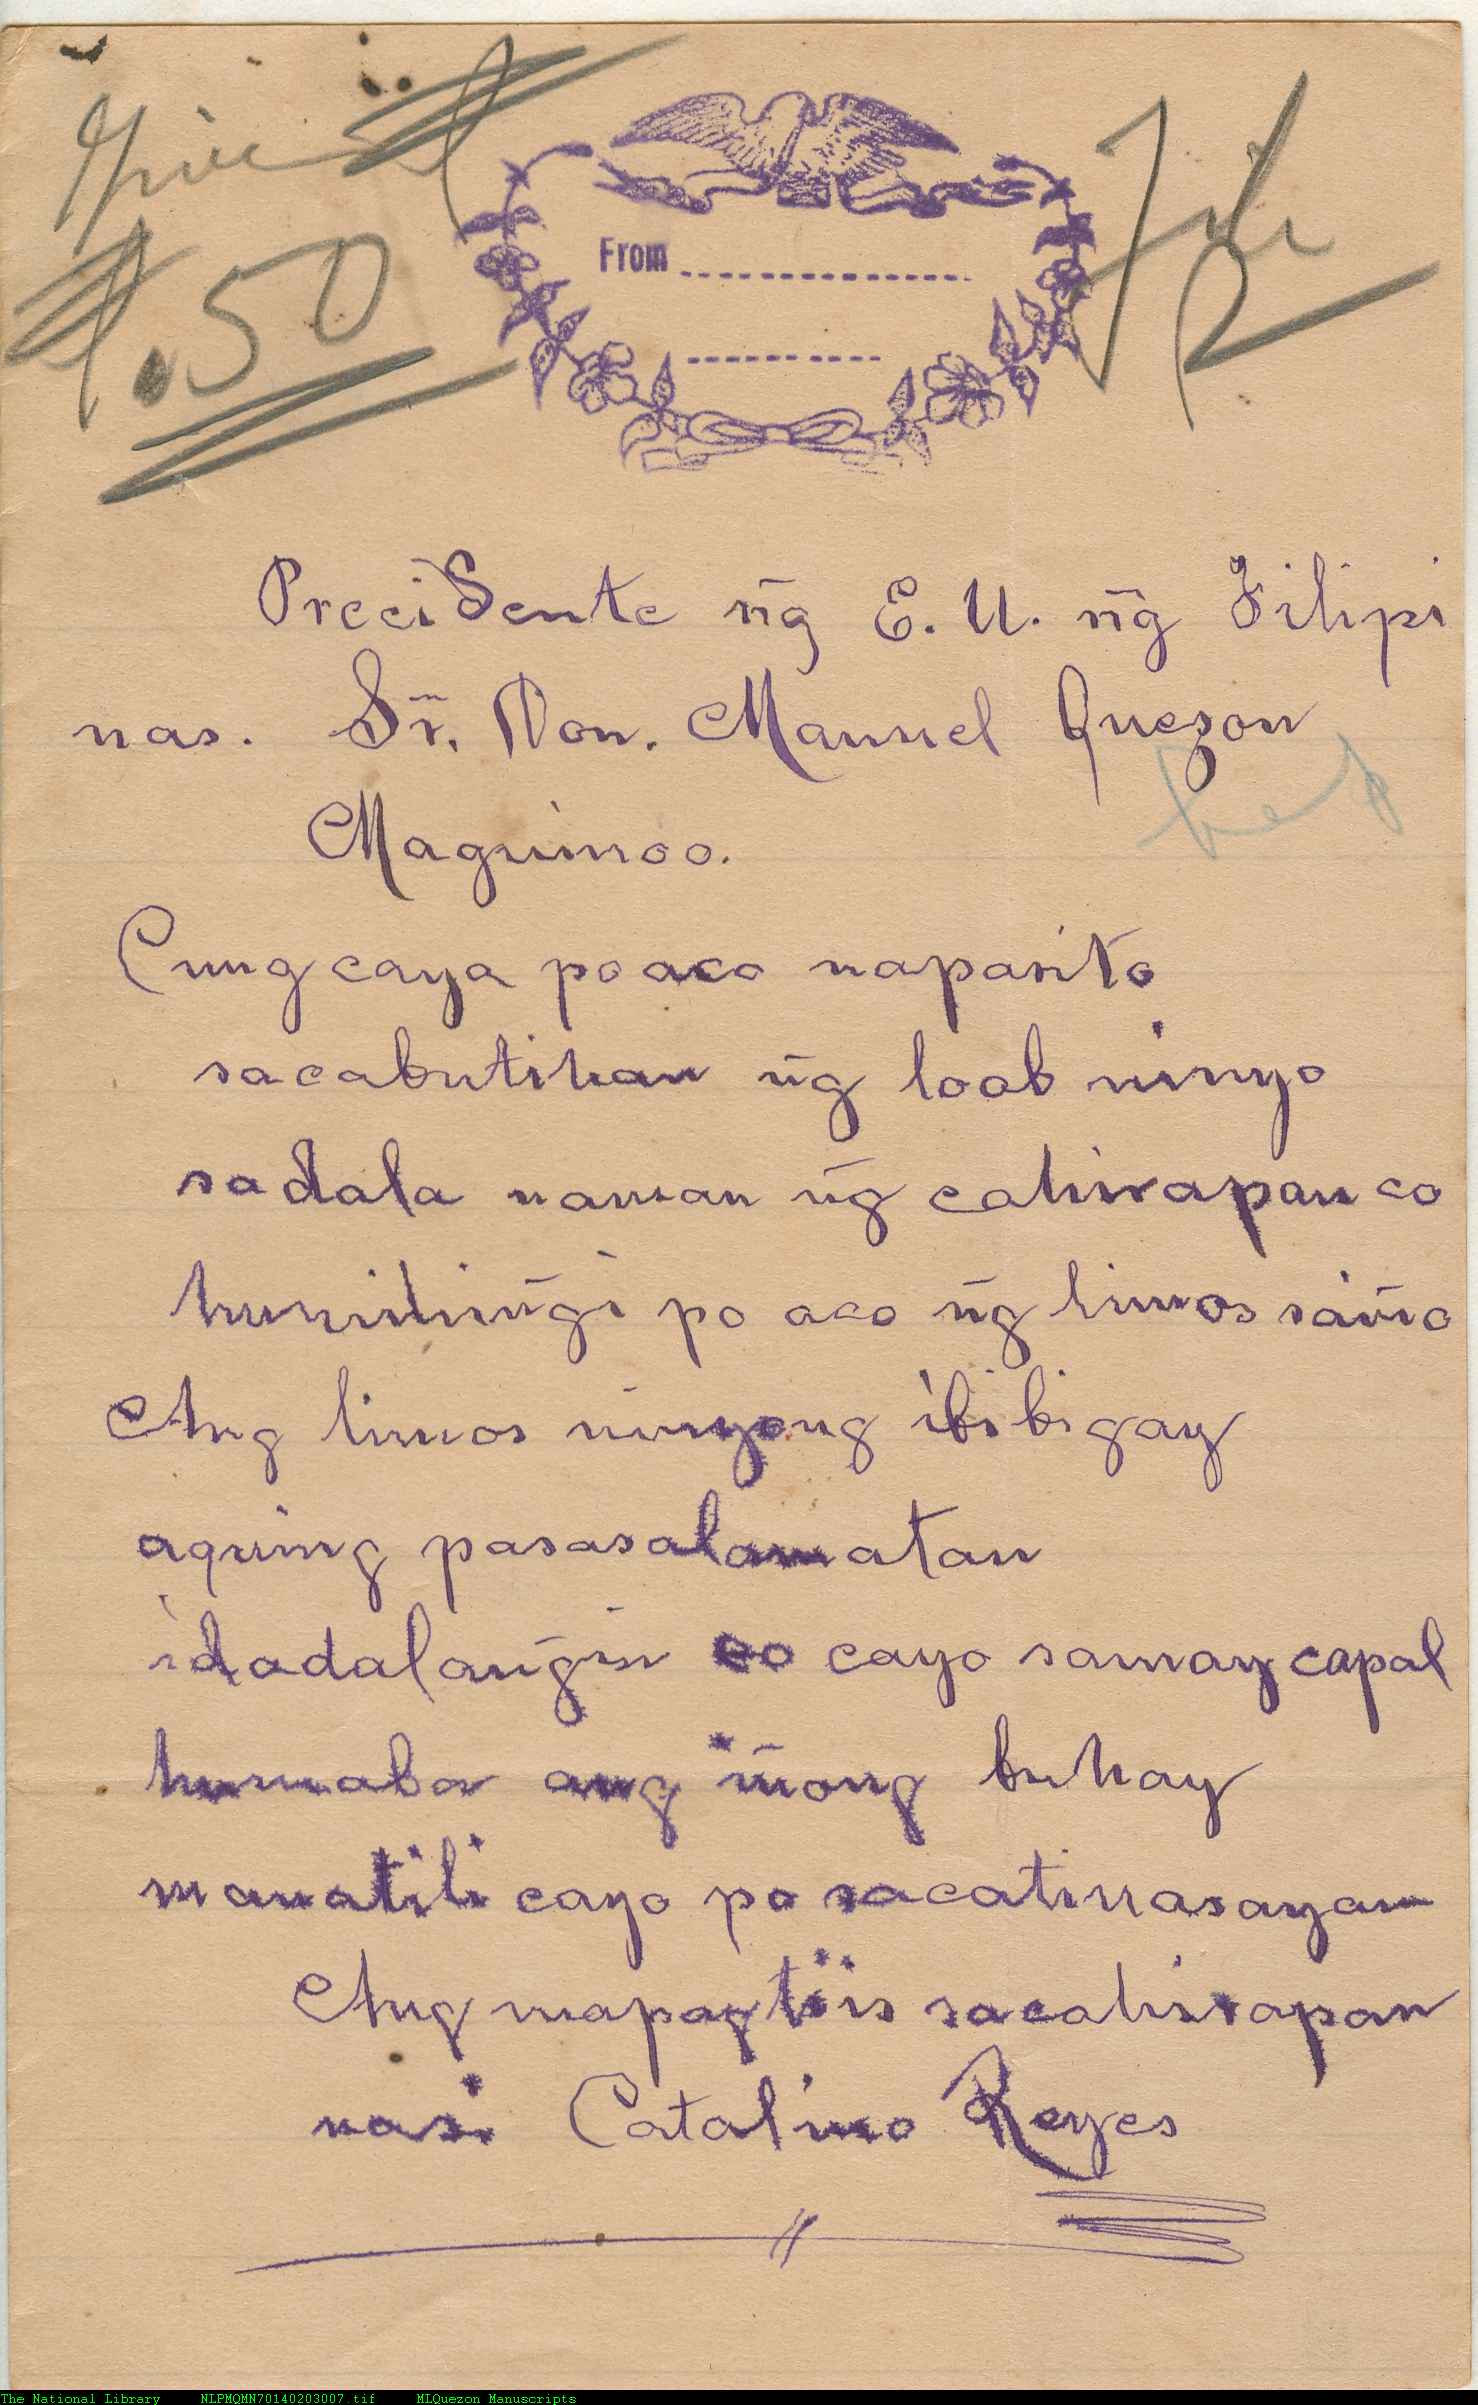 Given
₱.50
File
From
PreciSente ng̃ E. U. ng̃ Filipi
nas. Sr. Don. Manuel Queson
Maguinoo.
Cung caya po aco naparito
sa cabutihan ng̃ loob ninyo
sa dala naman ng̃ cahirapan co
humihing̃i po aco ng̃ limos saiño
Ang limos ninyong ibibigay
aquing pasasalamatan
idadalang̃in co cayo samay capal
humaba ang iñong buhay
manatili cayo po sacatiwasayan
Ang mapagtiis sacahirapan
nasi Catalino Reyes
The National Library NLPMQMN70140203007.tif MLQuezon Manuscripts